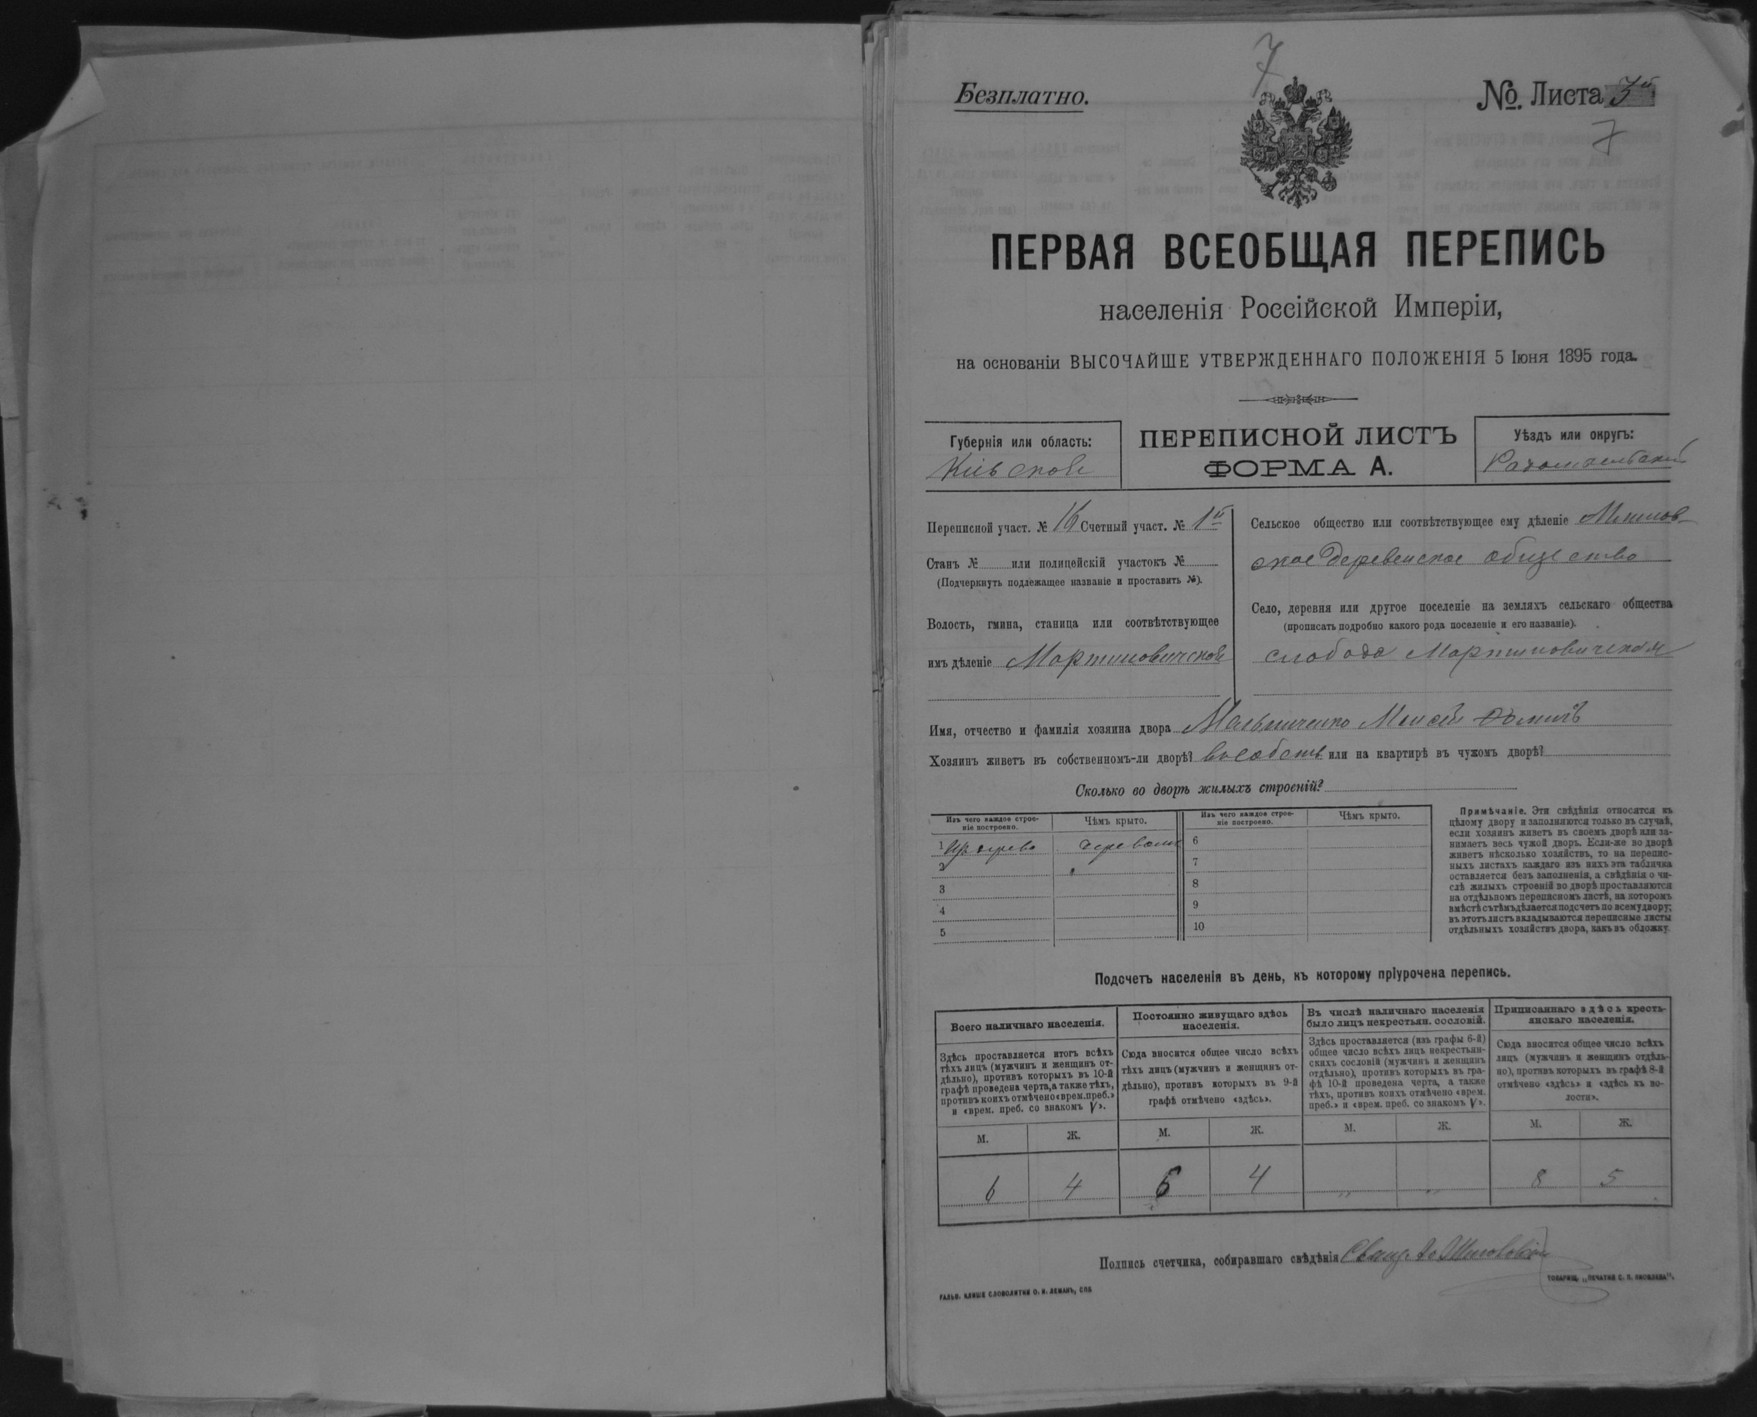 7
Безплатно.
№. Листа 3й
7
ПЕРВАЯ ВСЕОБЩАЯ ПЕРЕПИСЬ
населенія Россійской Имперіи,
на основаніи ВЫСОЧАЙШЕ УТВЕРЖДЕННАГО ПОЛОЖЕНІЯ 5 Іюня 1895 года.
Губернія или область:
Кіевской
ПЕРЕПИСНОЙ ЛИСТЪ
ФОРМА А.
Уѣздъ или округъ:
Радомысльскій
Переписной участ. № 16 Счетный участ. № 1й
Станъ № или полицейскій участокъ №
(Подчеркнуть подлежащее названіе и проставить №).
Волость, гмина, станица или соотвѣтствующее
имъ дѣленіе Мартиновичской
Сельское общество или соотвѣтствующее ему дѣленіе
ское деревенское общество
Село, деревня или другое поселеніе на земляхъ сельскаго общества
(прописать подробно какого рода поселеніе и его названіе).
слобода Мартиновичская
Имя, отчество и фамилія хозяина двора Мельниченко Моисей
Хозяинъ живетъ въ собственномъ-ли дворѣ? въ собств или на квартирѣ въ чужомъ дворѣ?
Сколько во дворѣ жилыхъ строеній?
Изъ чего каждое строе-
ніе построено.
Чѣмъ крыто.
Изъ чего каждое строе-
ніе построено.
Чѣмъ крыто.
1 Изъ дерева деревомъ
2
3
4
5
6
7
8
9
10
Примѣчаніе. Эти свѣдѣнія относятся къ
цѣлому двору и заполняются только въ случаѣ,
если хозяинъ живетъ въ своемъ дворѣ или за-
нимаетъ весь чужой дворъ. Если-же во дворѣ
живетъ нѣсколько хозяйствъ, то на перепис-
ныхъ листахъ каждаго изъ нихъ эта табличка
оставляется безъ заполненія, а свѣдѣнія о чи-
слѣ жилыхъ строеній во дворѣ проставляются
на отдѣльномъ переписномъ листѣ, на которомъ
вмѣстѣ съ тѣмъ дѣлается подсчетъ по всему двору;
въ этотъ листъ вкладываются переписные листы
отдѣльныхъ хозяйствъ двора, какъ въ обложку.
Подсчетъ населенія въ день, къ которому пріурочена перепись.
Всего наличнаго населенія.
Здѣсь проставляется итогъ всѣхъ
тѣхъ лицъ (мужчинъ и женщинъ от-
дѣльно), противъ которыхъ въ 10-й
графѣ проведена черта, а также тѣхъ,
противъ коихъ отмѣчено «врем. преб.»
и «врем. преб. со знакомъ V».
Постоянно живущаго здѣсь
населенія.
Сюда вносится общее число всѣхъ
тѣхъ лицъ (мужчинъ и женщинъ от-
дѣльно), противъ которыхъ въ 9-й
графѣ отмѣчено «здѣсь».
Въ числѣ наличнаго населенія
было лицъ некрестьян. сословій.
Здѣсь проставляется (изъ графы 6-й)
общее число всѣхъ лицъ некрестьян-
скихъ сословій (мужчинъ и женщинъ
отдѣльно), противъ которыхъ въ гра-
фѣ 10-й проведена черта, а также
тѣхъ, противъ коихъ отмѣчено «врем.
преб.» и «врем. преб. со знакомъ V».
Приписаннаго здѣсь кресть-
янскаго населенія.
Сюда вносится общее число всѣхъ
лицъ (мужчинъ и женщинъ отдѣль-
но), противъ которыхъ въ графѣ 8-й
отмѣчено «здѣсь» и «здѣсь къ во-
лости».
М. Ж. М. Ж. М. Ж. М. Ж.
6 4 6 4 „ „ 8 5
Подпись счетчика, собиравшаго свѣдѣнія
ГАЛЬВ. КЛИШЕ СЛОВОЛИТНИ О. И. ЛЕМАНЪ, СПБ
ТОВАРИЩ. „ПЕЧАТНЯ С. П. ЯКОВЛЕВА".